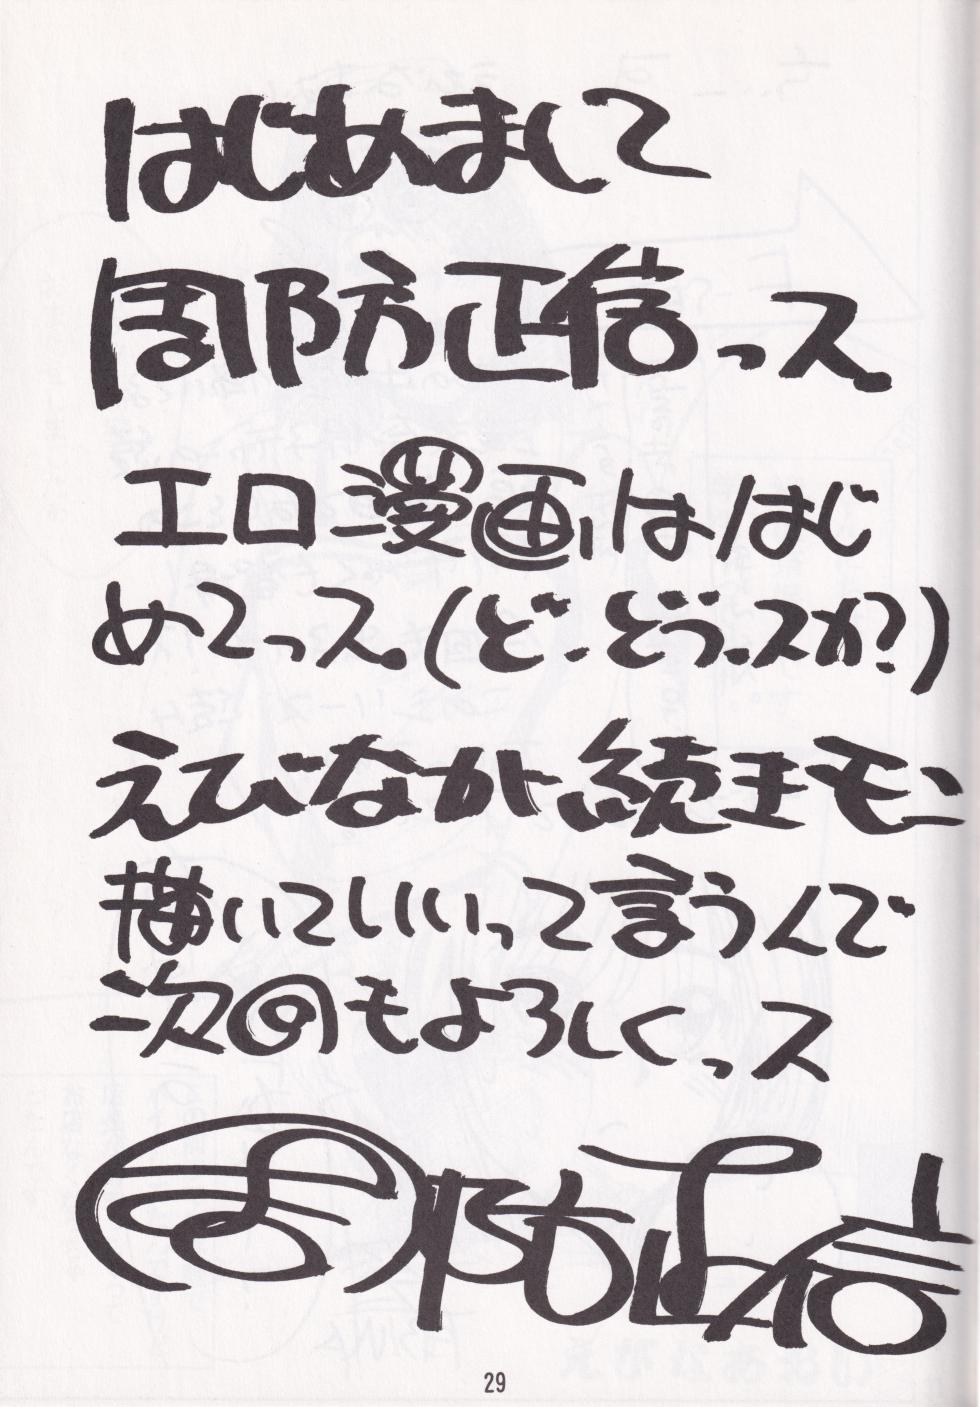 はじめまして
周防正信っス。
エロ漫画ははじ
めてっス。(ど、どうっスか?)
えびなが続きモン
描いていいって言うんで
次回もよろしくっス
周防正信
29